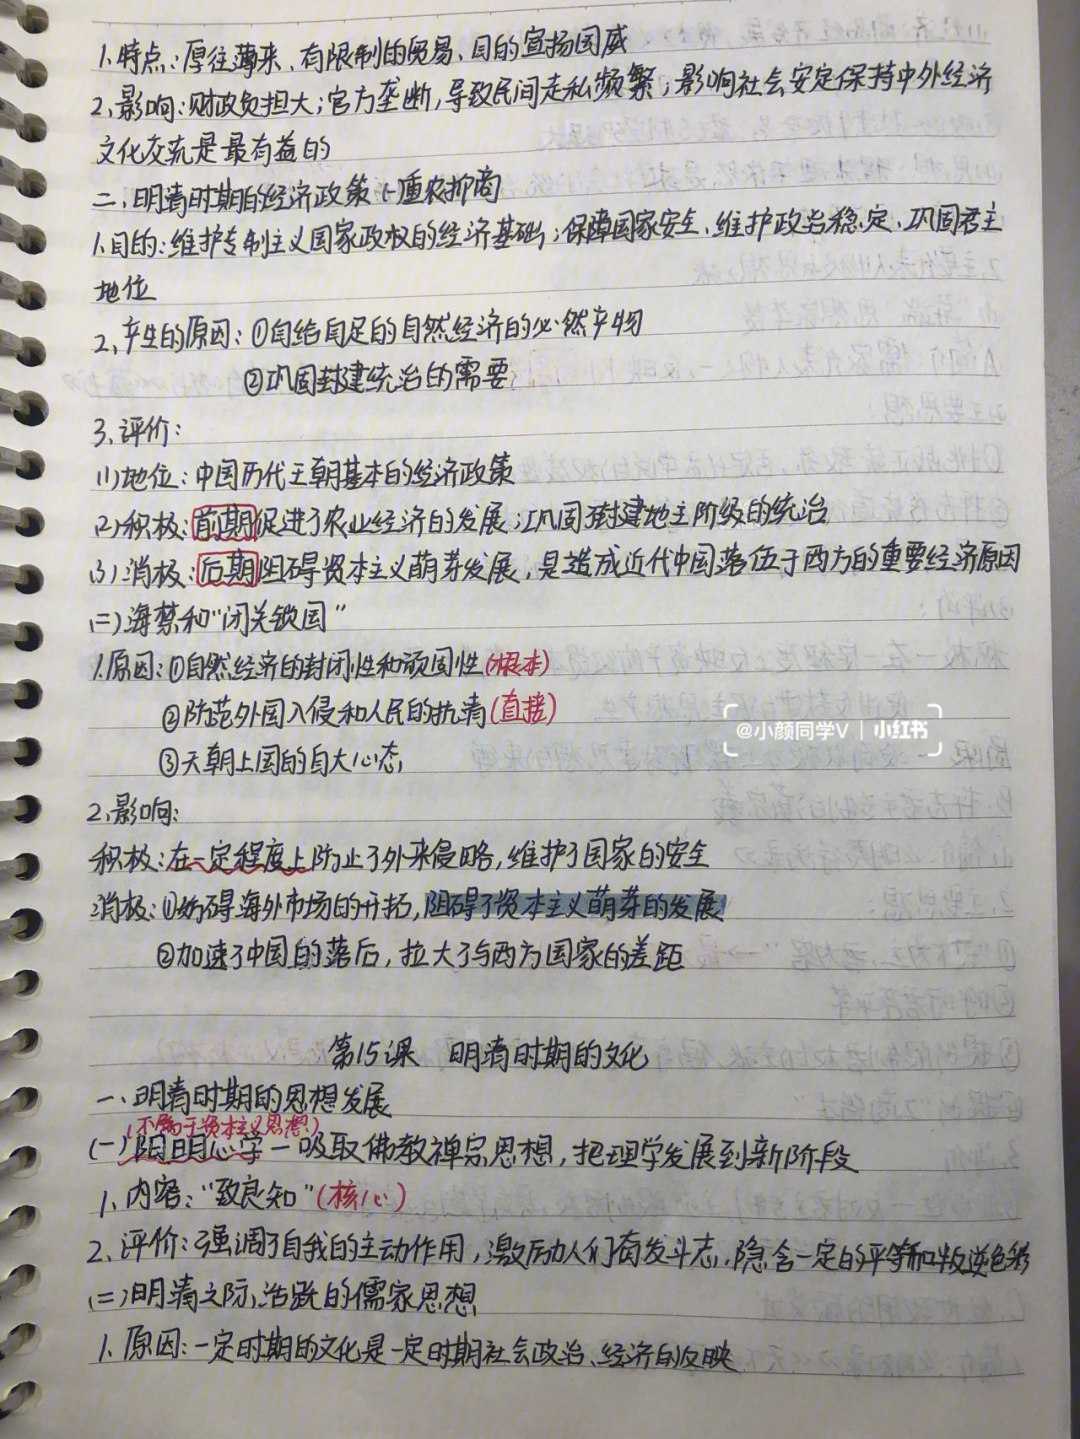 1.特点:厚往薄来、有限制的贸易、目的宣扬国威
2.影响:财政负担大;官方垄断,导致民间走私频繁;影响社会安定保持中外经济
文化交流是最有益的
二、明清时期的经济政策(一)重农抑商
1.目的:维护专制主义国家政权的经济基础;保障国家安全、维护政治稳定、巩固君主
地位
2、产生的原因:①自给自足的自然经济的必然产物
②巩固封建统治的需要
3、评价:
(1)地位:中国历代王朝基本的经济政策
(2)积极:前期促进了农业经济的发展;巩固了封建地主阶级的统治
(3)消极:后期阻碍资本主义萌芽发展,是造成近代中国落伍于西方的重要经济原因
(二)海禁和"闭关锁国"
1.原因:①自然经济的封闭性和顽固性(根本)
②防范外国入侵和人民的抗清(直接)
③天朝上国的自大心态
@小颜同学V 小红书
2.影响:
积极:在一定程度上防止了外来侵略,维护了国家的安全
消极:①妨碍海外市场的开拓,阻碍了资本主义萌芽的发展
②加速了中国的落后,拉大了与西方国家的差距
第15课 明清时期的文化
一、明清时期的思想发展
(不属于资本主义思想)
(一)阳明心学—吸取佛教禅宗思想,把理学发展到新阶段
1、内容:"致良知"(核心)
2、评价:强调了自我的主动作用,激励人们奋发斗志,隐含一定的平等和叛逆色彩
(二)明清之际,活跃的儒家思想
1、原因:一定时期的文化是一定时期社会政治、经济的反映